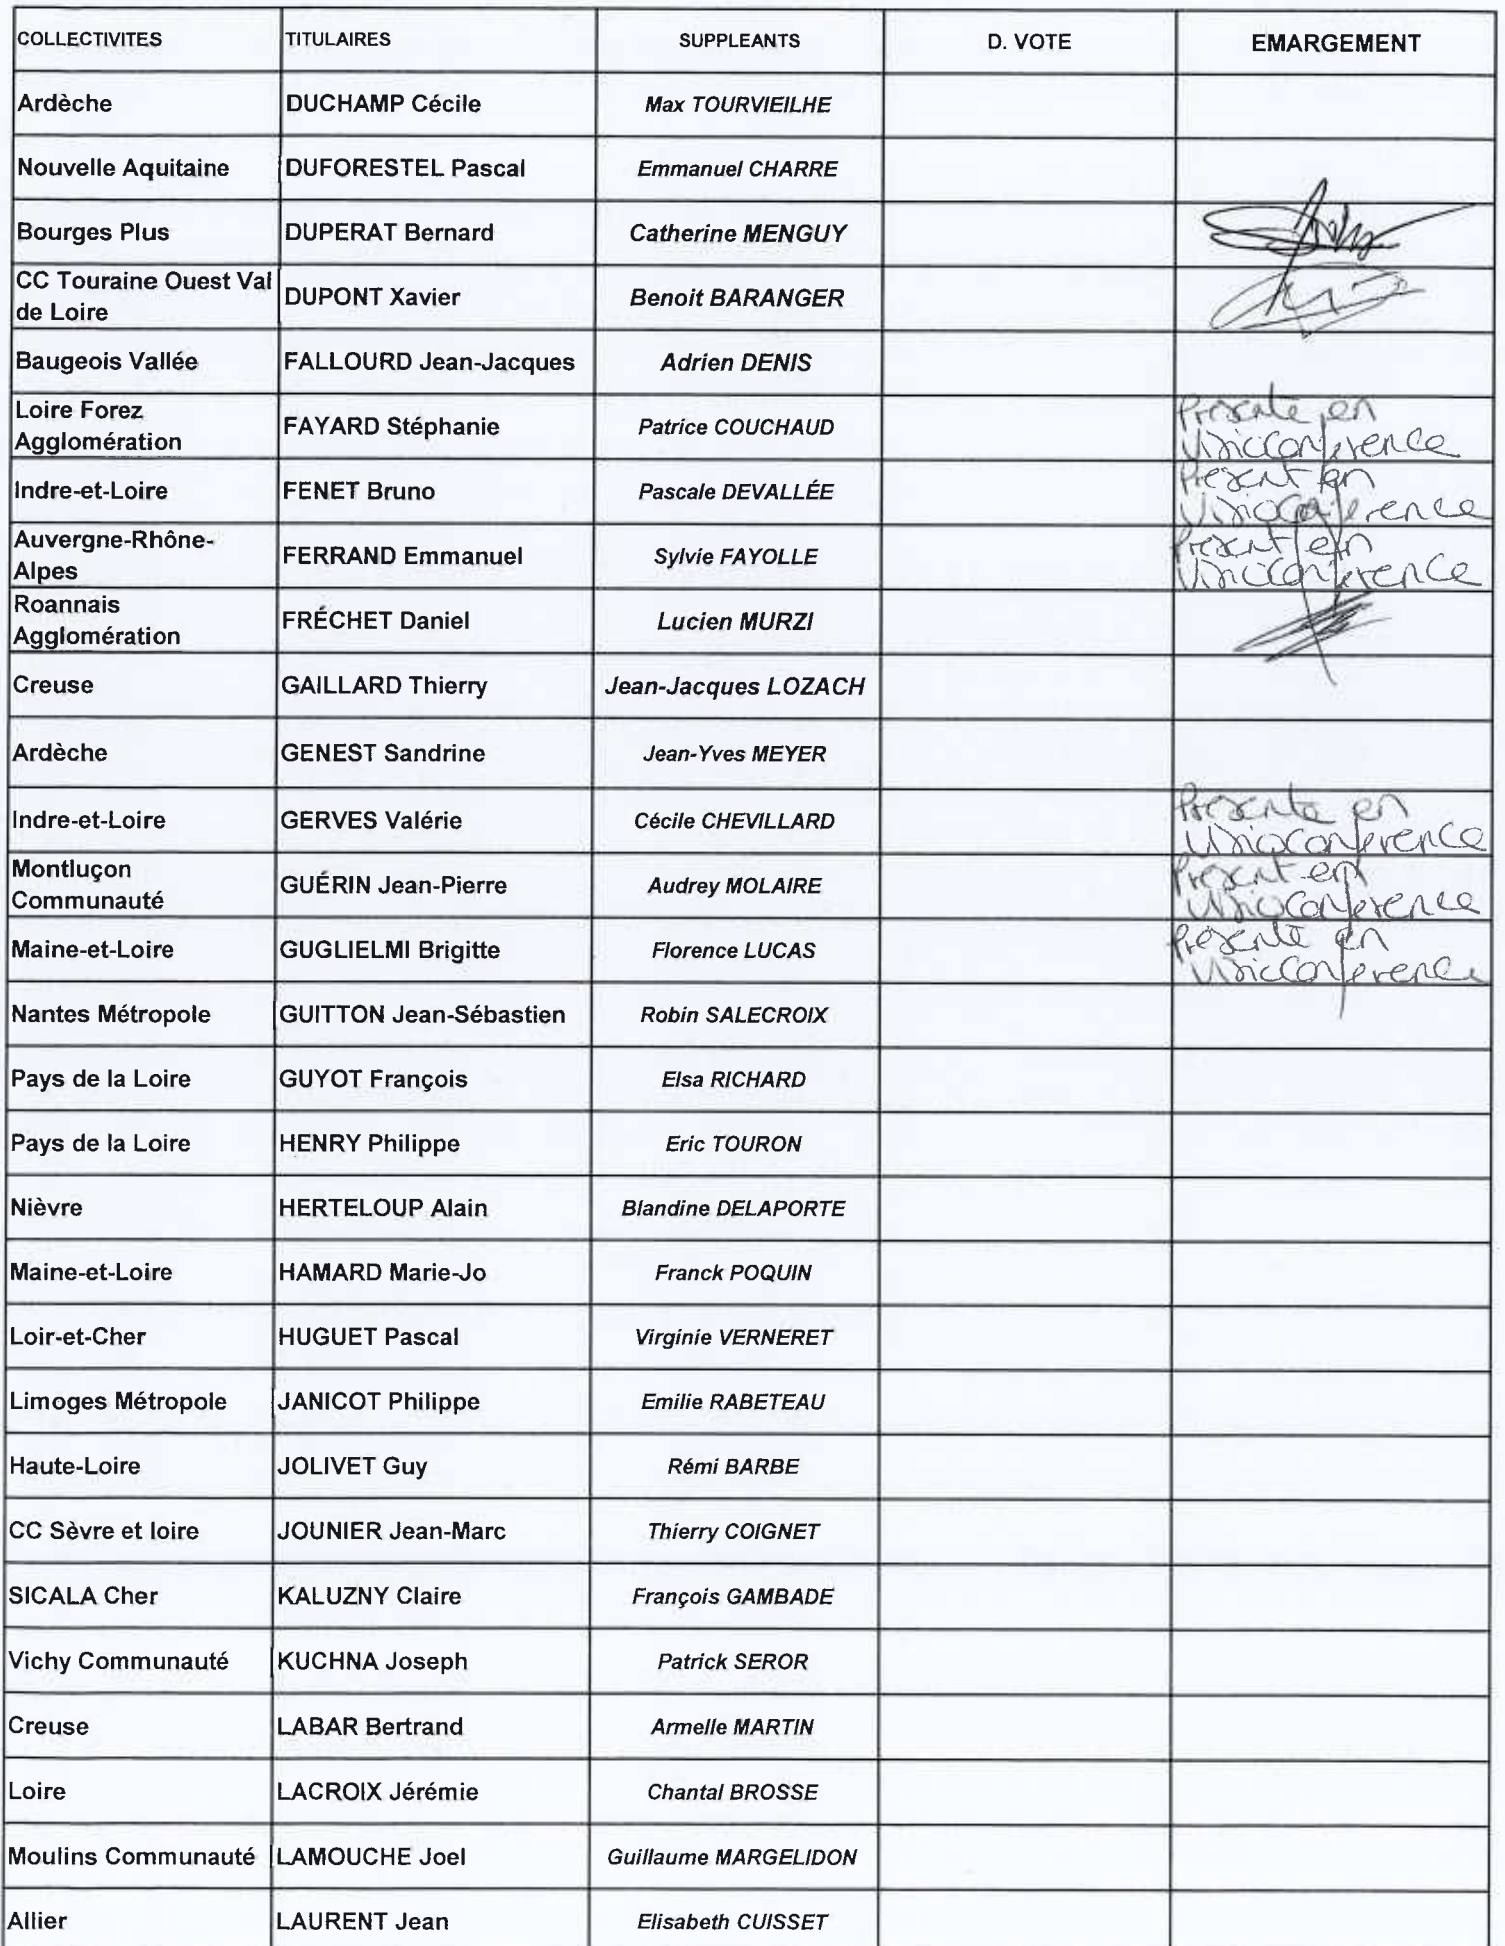 COLLECTIVITES TITULAIRES SUPPLEANTS D. VOTE EMARGEMENT
Ardèche DUCHAMP Cécile Max TOURVIEILHE
Nouvelle Aquitaine DUFORESTEL Pascal Emmanuel CHARRE
Bourges Plus DUPERAT Bernard Catherine MENGUY
CC Touraine Ouest Val
de Loire DUPONT Xavier Benoit BARANGER
Baugeois Vallée FALLOURD Jean-Jacques Adrien DENIS
Loire Forez
Agglomération FAYARD Stéphanie Patrice COUCHAUD Présente en
Visioconférence
Indre-et-Loire FENET Bruno Pascale DEVALLÉE Présent en
Visioconférence
Auvergne-Rhône-
Alpes FERRAND Emmanuel Sylvie FAYOLLE Présent en
Visioconférence
Roannais
Agglomération FRÉCHET Daniel Lucien MURZI
Creuse GAILLARD Thierry Jean-Jacques LOZACH
Ardèche GENEST Sandrine Jean-Yves MEYER
Indre-et-Loire GERVES Valérie Cécile CHEVILLARD Présente en
Visioconférence
Montluçon
Communauté GUÉRIN Jean-Pierre Audrey MOLAIRE Présent en
Visioconférence
Maine-et-Loire GUGLIELMI Brigitte Florence LUCAS Présente en
Visioconférence
Nantes Métropole GUITTON Jean-Sébastien Robin SALECROIX
Pays de la Loire GUYOT François Elsa RICHARD
Pays de la Loire HENRY Philippe Eric TOURON
Nièvre HERTELOUP Alain Blandine DELAPORTE
Maine-et-Loire HAMARD Marie-Jo Franck POQUIN
Loir-et-Cher HUGUET Pascal Virginie VERNERET
Limoges Métropole JANICOT Philippe Emilie RABETEAU
Haute-Loire JOLIVET Guy Rémi BARBE
CC Sèvre et loire JOUNIER Jean-Marc Thierry COIGNET
SICALA Cher KALUZNY Claire François GAMBADE
Vichy Communauté KUCHNA Joseph Patrick SEROR
Creuse LABAR Bertrand Armelle MARTIN
Loire LACROIX Jérémie Chantal BROSSE
Moulins Communauté LAMOUCHE Joel Guillaume MARGELIDON
Allier LAURENT Jean Elisabeth CUISSET